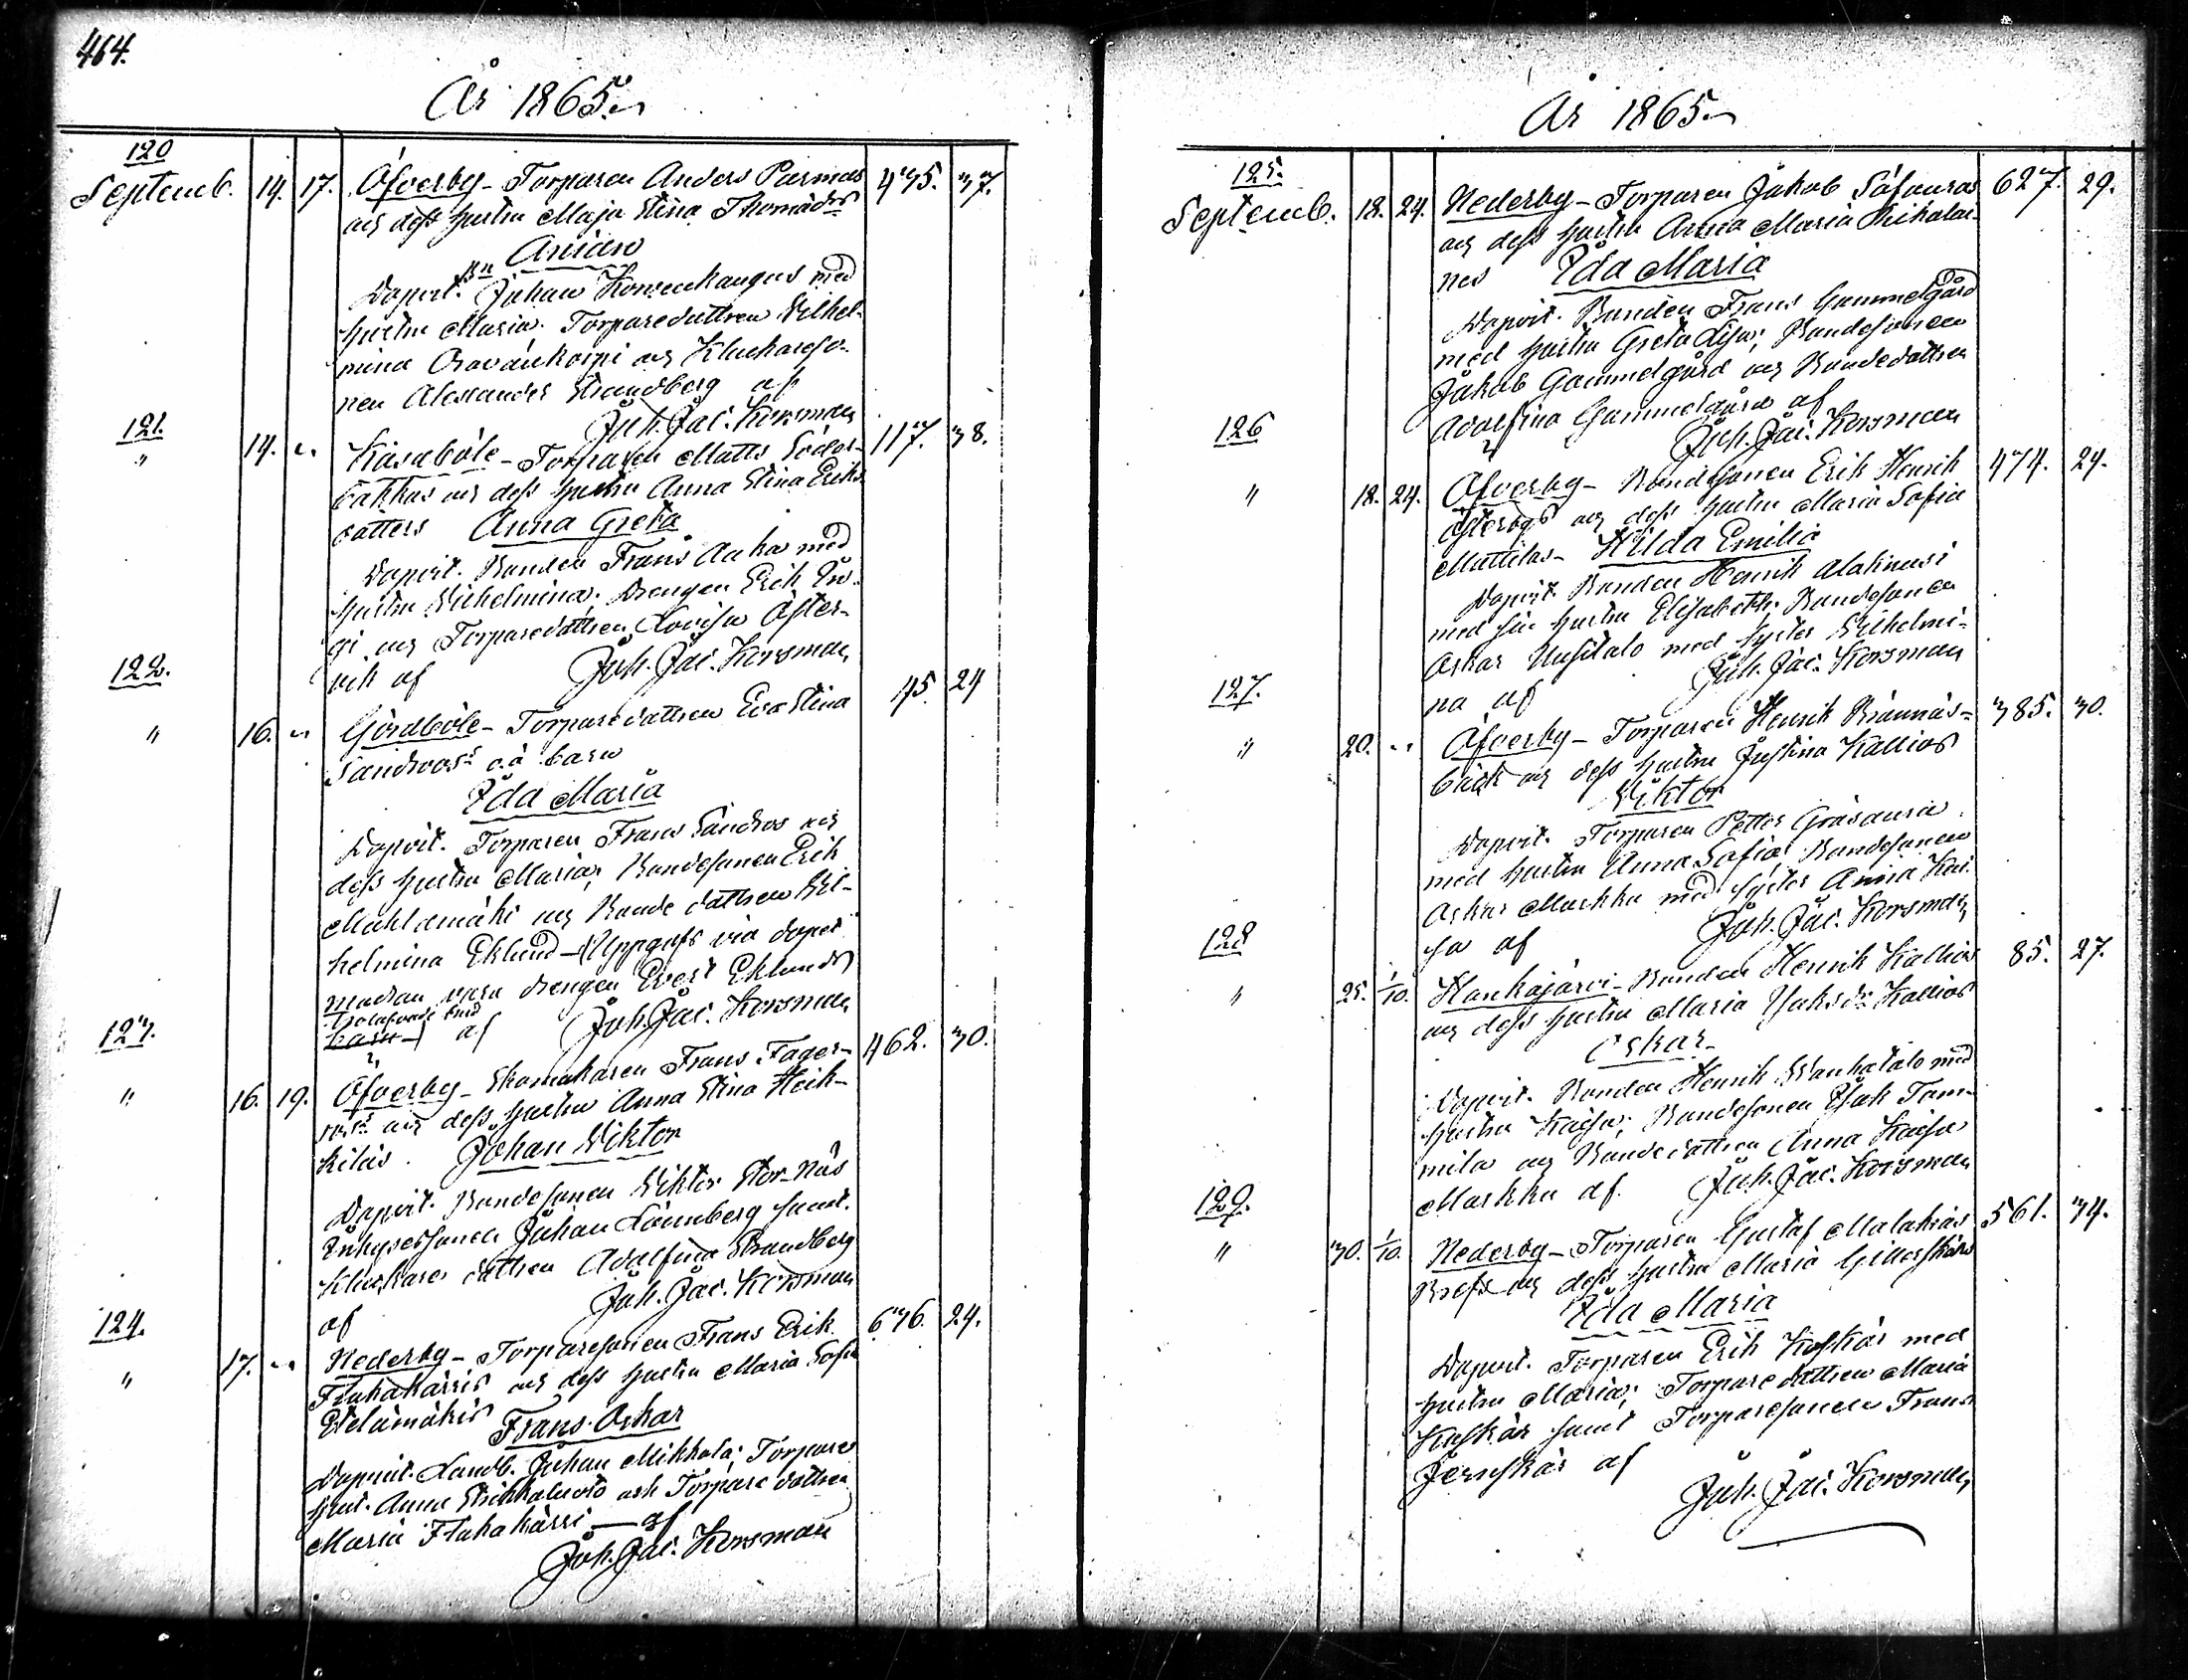 464.
År 1865.
120
Septemb. 14. 17. Öfverby - Torparen Anders Pärmas 435. 37.
och dess hustru Maja Stina Thomædr
Anian
Dopvit. Bn Johan Korsenkangus med
hustru Maria. Torparedattren Wilhel-
mina Oravankorpi och Kluckareso-
nen Alexander Strandberg af
Joh. Jac. Korsman
121.
" 14. " Kåsaböle - Torparen Matts Söder- 117. 38.
backas och dess hustru Anna Stina Eriks
datters Anna Greta
Dopvit. Bonden Frans Anka med
hustru Wilhelmina; Drengen Erik
och Torparedattren Lovisa Öster-
vik af Joh. Jac. Korsman
122.
" 16. " Gördböle - Torparedattren Eva Stina 45. 24
Sandroos's o.ä. barn
Ida Maria
Dopvit. Torparen Frans Sandros och
dess hustru Maria; Bondesonen Erik
Mahlamäki och Bonde dattren Wil-
helmina Eklund - (Uppgafs via dopet
modran vara drengen Evert Eklunds
af Joh. Jac. Korsman
123.
" 16. 19. Öfverby - Skomakaren Frans Fager- 462. 30.
och dess hustru Anna Stina Heik-
kilas. Johan Wiktor
Dopvit. Bondesonen Wiktor Stor-Näs
Inhysessonen Johan Lönnberg samt.
Kluckare dattren Adolfina Strandberg
af Joh. Jac. Korsman
124.
" 17. " Nederby - Torparesonen Frans Erik 636. 24.
Fluhakärris och dess hustru Maria Sofia
Etelämäkis Frans Oskar
Dopvit. Landb. Johan Mikkola; Torpare
hust. Anna och Torpare dattren
Maria Fluhakärri - af
Joh. Jac. Korsman
År 1865
125.
Septemb. 18. 24. Nederby - Torparen Jakob Säfauras 627. 29.
och dess hustru Anna Maria
nes Ida Maria
Dopvit. Bonden Frans Gammelgård
med hustru Greta Lisa; Bondesonen
Jakob Gammelgård och Bondedattren
Adolfina Gammelgård af
Joh. Jac. Korsman
126
" 18. 24. Öfverby - Bondesonen Erik Henrik 474. 24.
Österbys och dess hustru Maria Sofia
Mattilas - Hilda Emilia
Dopvit. Bonden Henrik Alakiuusi
med sin hustru Elisabeth; Bondesonen
Oskar Uusitalo med syster Wilhelmi-
na af Joh. Jac. Korsman
127.
" 20. " Öfverby - Torparen Henrik Brännäs- 385. 30.
back och dess hustru Justina Kallios
Wiktor
Dopvit. Torparen Petter Gräsaura
med hustru Anna Sofia; Bondesonen
Oskar Markku med syster Anna Kai-
sa af Joh. Jac. Korsman
128
" 25. 1/10. Kankajärvi - Bonden Henrik Kallios 85. 27.
och dess hustru Maria Isaksdr Kallios
Oskar -
Dopvit. Bonden Henrik Wanhatalo med
hustru Kaisa; Bondesonen Isak Tom-
mila och Bondedattren Anna Kaisa
Markku af. Joh. Jac. Korsman
129.
" 30. 1/10. Nederby - Torparen Gustaf Malakias 561. 34.
och dess hustru Maria Gillerskärs
Ida Maria
Dopvit. Torparen Erik Koskär med
hustru Maria; Torpare dattren Maria
Koskär samt Torparesonen Frans
Jernskär af
Joh. Jac. Korsman